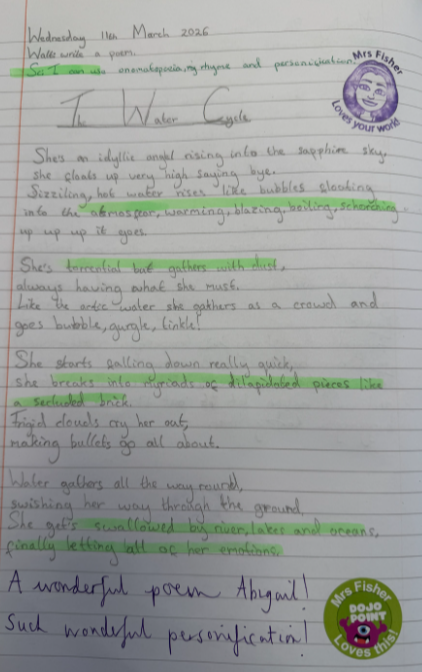 Wednesday 11th March 2026
Walt: write a poem.
So I can use onomatopoeia, rhyme and personification.
Mrs Fisher
Loves your work!
The Water Cycle
She's an idyllic angel rising into the sapphire sky,
she floats up very high saying bye.
Sizziling, hot water rises like bubbles floating
into the atmospear, warming, blazing, boiling, schorching
up up up it goes.
She's torrential but gathers with dust,
always having what she must.
Like the artic water she gathers as a crowd and
goes bubble, gurgle, tinkle!
She starts falling down really quick,
she breaks into myriads of dilapidated pieces like
a secluded brick.
Frigid clouds cry her out,
making bullets go all about.
Water gathers all the way round,
swishing her way through the ground,
She get's swallowed by river, lakes and oceans,
finally letting all of her emotions.
A wonderful poem Abigail!
Such wondeful personification!
Mrs Fisher
DOJO
POINT
Loves this!